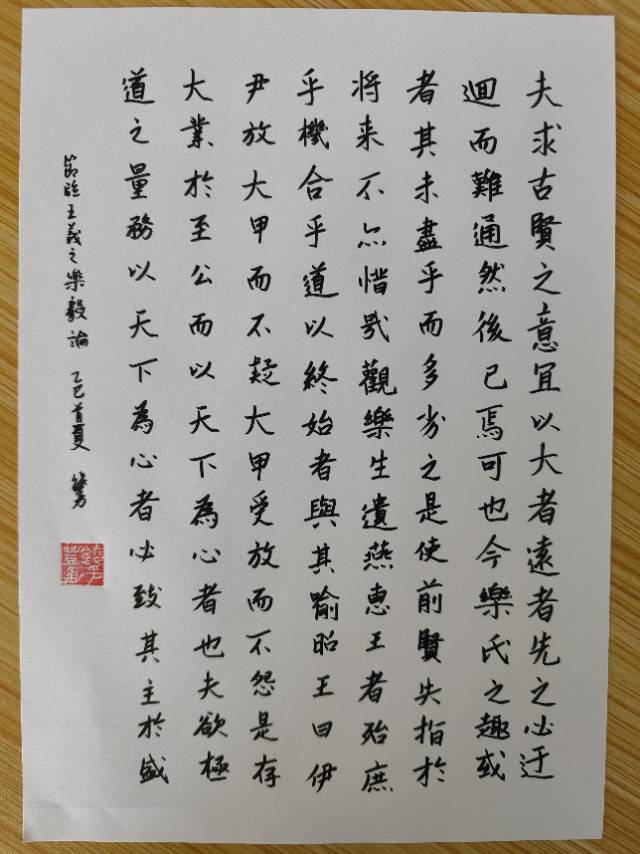 夫求古賢之意宜以大者遠者先之必迂
迴而難通然後已焉可也今樂氏之趣或
者其未盡乎而多劣之是使前賢失指於
将来不亦惜哉觀樂生遺燕惠王者殆庶
乎機合乎道以終始者與其喻昭王曰伊
尹放大甲而不疑大甲受放而不怨是存
大業於至公而以天下為心者也夫欲極
道之量務以天下為心者必致其主於盛
節臨王羲之樂毅論 乙巳首夏